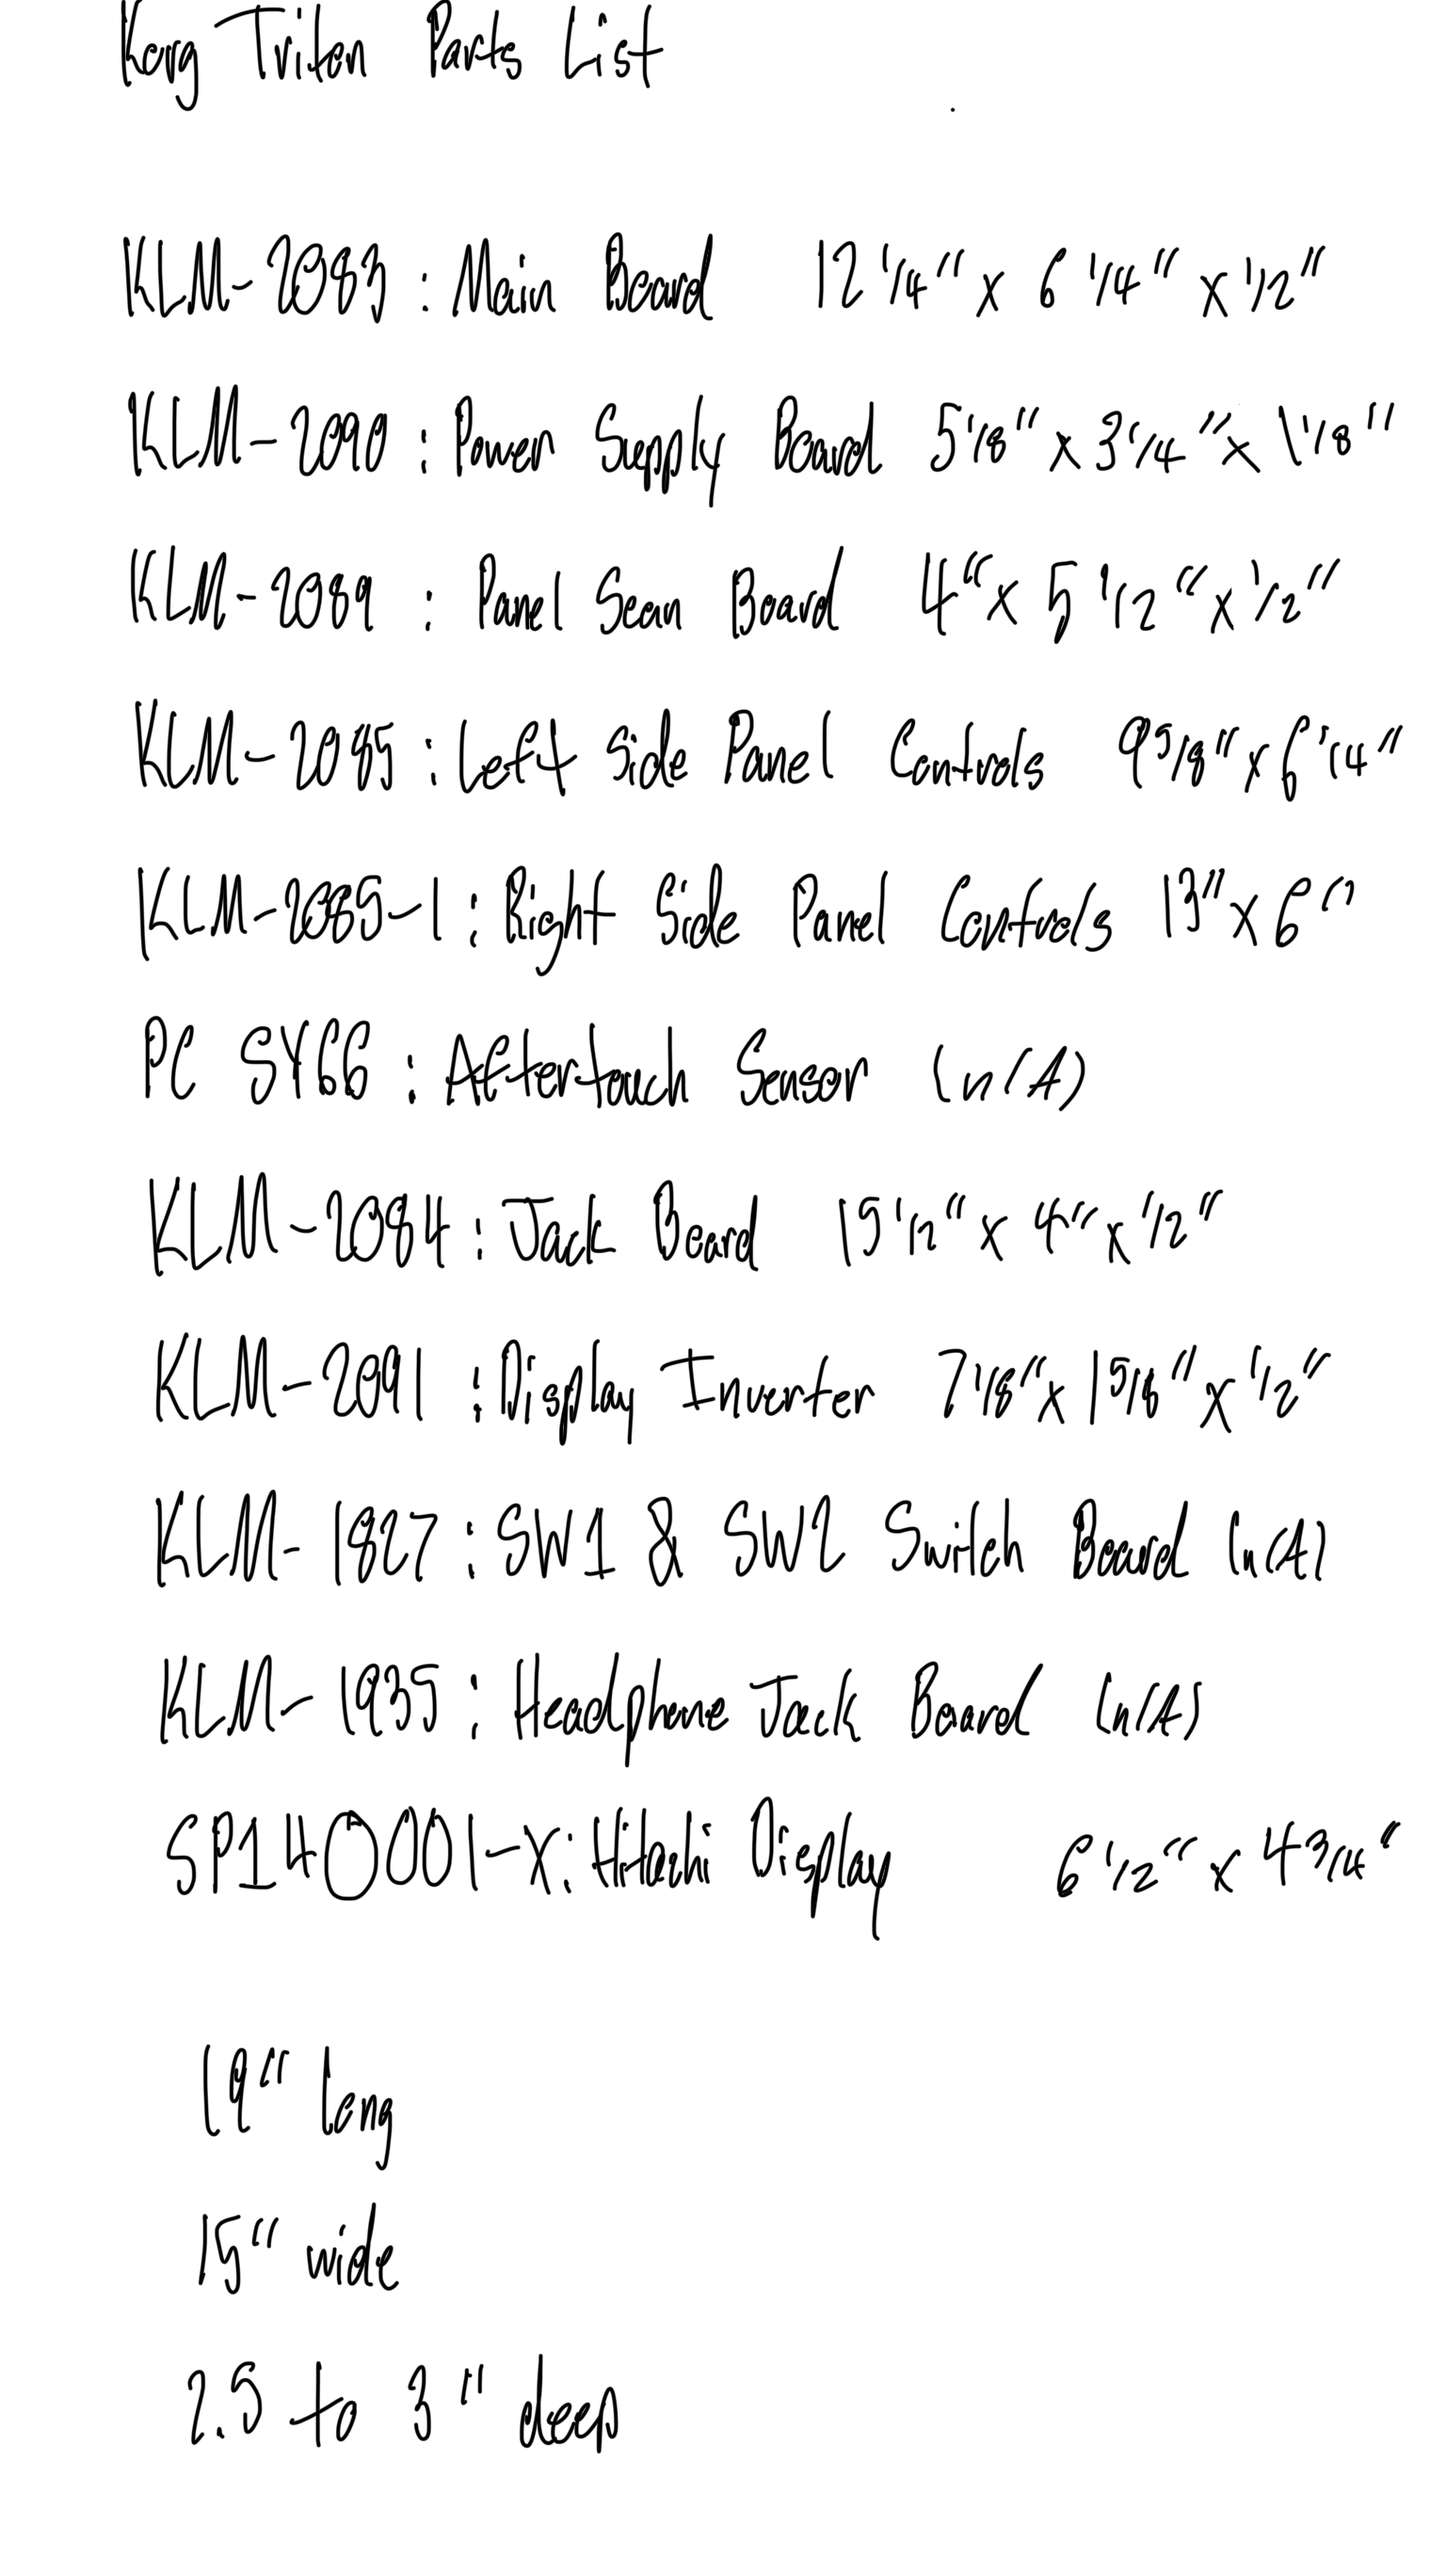 Korg Triton Parts List
KLM-2083 : Main Board 12 1/4" x 6 1/4" x 1/2"
KLM-2090 : Power Supply Board 5 1/8" x 3 1/4" x 1 1/8"
KLM-2089 : Panel Scan Board 4" x 5 1/2" x 1/2"
KLM-2085 : Left Side Panel Controls 9 5/8" x 6 1/4"
KLM-2085-1 : Right Side Panel Controls 13" x 6"
PC SY66 : Aftertouch Sensor (n/A)
KLM-2084 : Jack Board 15 1/2" x 4" x 1/2"
KLM-2091 : Display Inverter 7 1/8" x 1 5/8" x 1/2"
KLM-1827 : SW1 & SW2 Switch Board (n/A)
KLM-1935 : Headphone Jack Board (n/A)
SP140001-X : Hitachi Display 6 1/2" x 4 3/4"
19" long
15" wide
2.5 to 3" deep